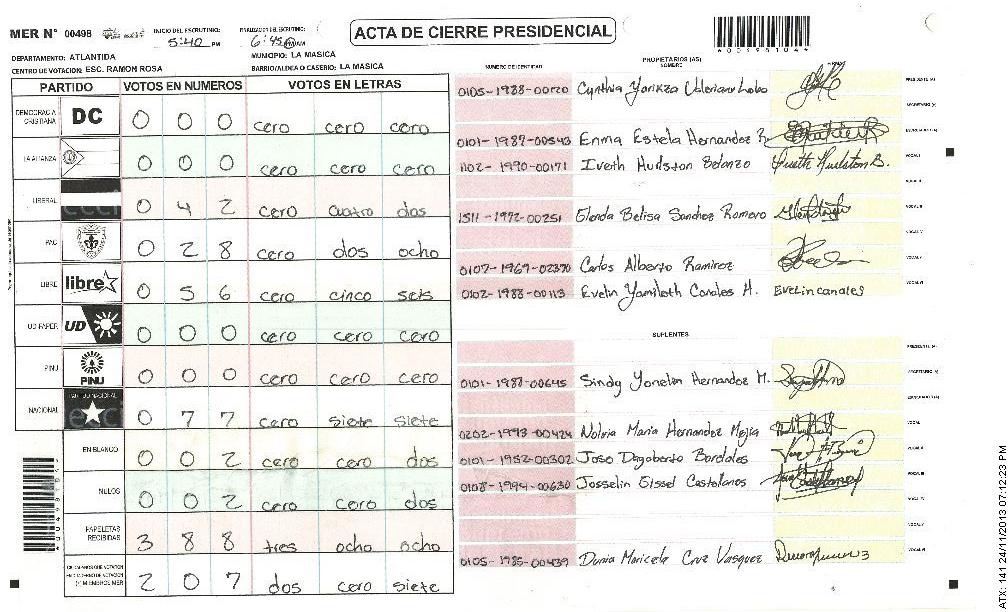 MER N° 00498
INICIO DEL ESCRUTINIO: 5:40 PM
FINALIZACION DEL ESCRUTINIO: 6:45 PM/AM
ACTA DE CIERRE PRESIDENCIAL
DEPARTAMENTO: ATLANTIDA
MUNICIPIO: LA MASICA
CENTRO DE VOTACION: ESC. RAMON ROSA
BARRIO/ALDEA O CASERIO: LA MASICA
PARTIDO VOTOS EN NUMEROS VOTOS EN LETRAS
DEMOCRACIA CRISTIANA DC 0 0 0 cero cero cero
LA ALIANZA 0 0 0 cero cero cero
LIBERAL 0 4 2 cero cuatro dos
PAC 0 2 8 cero dos ocho
LIBRE libre 0 5 6 cero cinco seis
UD-FAPER UD 0 0 0 cero cero cero
PINU PINU 0 0 0 cero cero cero
NACIONAL PARTIDO NACIONAL 0 7 7 cero siete siete
EN BLANCO 0 0 2 cero cero dos
NULOS 0 0 2 cero cero dos
PAPELETAS RECIBIDAS 3 8 8 tres ocho ocho
2 0 7 dos cero siete
NUMERO DE IDENTIDAD
PROPIETARIOS (AS)
NOMBRE
FIRMA
0105-1988-00720 Cynthia Yorikza Valeriano Lobo
PRESIDENTE (A)
SECRETARIO (A)
0101-1987-00543 Enma Estela Hernandez R.
ESCRUTADOR (A)
1102-1990-00171 Iveth Hudston Belanzo
VOCAL I
VOCAL II
1511-1972-00251 Glenda Belisa Sanchez Romero
VOCAL III
VOCAL IV
0107-1969-02370 Carlos Alberto Ramirez
VOCAL V
0102-1988-00113 Evelin Yamileth Canales H. Evelin canales
VOCAL VI
SUPLENTES
PRESIDENTE (A)
0101-1988-00645 Sindy Yonelin Hernandez M.
SECRETARIO (A)
ESCRUTADOR (A)
0202-1993-00424 Nolvia Maria Hernandez Mejia
VOCAL I
0101-1952-00302 Jose Dagoberto Bordales
VOCAL II
0108-1994-00630 Josselin Gissel Castellanos
VOCAL III
VOCAL IV
VOCAL V
0105-1985-00439 Dunia Maricela Cruz Vasquez
VOCAL VI
ATX: 141 24/11/2013 07:12:23 PM